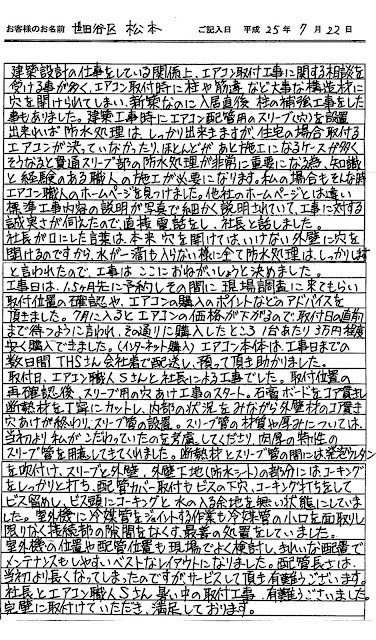 お客様のお名前 世田谷区 松本 ご記入日 平成25年7月22日
建築設計の仕事をしている関係上、エアコン取付工事に関する相談を
受ける事が多く、エアコン取付時に柱や筋違など大事な構造材に
穴を開けられてしまい、新築なのに入居直後 柱の補強工事をした
事もありました。建築工事時にエアコン配管用のスリーブ(穴)を設置
出来れば防水処理は、しっかり出来ますが、住宅の場合取付る
エアコンが決っていなかったり、ほとんどがあと施工になるケースが多く
そうなると貫通スリーブ部の防水処理が非常に重要になる為、知識
と経験のある職人の施工が必要になります。私の場合もそんな時
エアコン職人のホームページを見つけました。他社のホームページとは違い
標準工事内容の説明が写真で細かく説明されていて、工事に対する
誠実さが伺えたので、直接電話をし、社長と話しました。
社長が口にした言葉は、本来 穴を開けてはいけない外壁に穴を
開けるのですから、水が一滴も入らない様に全て防水処理は、しっかりします
と言われたので、工事は ここにおねがいしようと決めました。
工事日は、1.5ヶ月先に予約しその間に 現場調査に来てもらい
取付位置の確認や、エアコンの購入のポイントなどのアドバイスを
頂きました。7月に入るとエアコンの価格が下がるので、取付日の直前
まで待つように言われ、その通りに購入したところ 1台あたり3万円程度
安く購入できました。(インターネット購入) エアコン本体は、工事日までの
数日間 THSさん会社宛で配送し、預って頂き助かりました。
取付日、エアコン職人Sさんと社長による工事でした。取付位置の
再確認後、スリーブ用の穴あけ工事のスタート。石膏ボードをコア貫きし
断熱材を丁寧にカットし、内部の状況をみながら外壁材のコア貫き
穴あけが終わり、スリーブ管の設置。スリーブ管の材質や厚みについては、
当初より私がこだわっていたのを考慮してくださり、肉厚の特性の
スリーブ管を用意してきてくれました。断熱材とスリーブ管の間には発泡ウレタン
を吹付け、スリーブと外壁、外壁下地(防水シート)の部分にはコーキング
をしっかりと打ち、配管カバー取付もビスの下穴、コーキング打ちをして
ビス留めし、ビス頭にコーキングと 水の入る余地を無い状態にしていま
した。室外機に冷媒管をジョイントする作業も冷媒管の小口を面取りし
限りなく接続部の隙間をなくす、最善の処置をしていました。
室外機の位置や配管位置も現場でよく検討し、きれいな配置で
メンテナンスもしやすいベストなレイアウトになりました。配管長さは、
当初より長くなってしまったのですがサービスして頂き有難うございます。
社長とエアコン職人Sさん 暑い中の取付工事、有難うございました。
完璧に取付けていただき、満足しております。